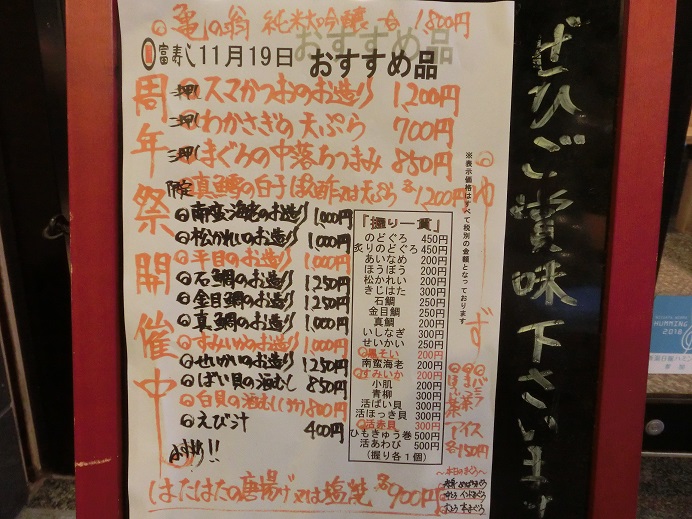 亀の翁 純米大吟醸 一合 1,800円
富寿し 11月19日 おすすめ品
おすすめ品
周年祭開催中
一押し スマかつおのお造り 1,200円
二押し わかさぎの天ぷら 700円
三押し まぐろの中落ちつまみ 850円
限定 真鱈の白子 ぽん酢又は天ぷら 各1,200円
南蛮海老のお造り 1,000円
松かれいのお造り 1,000円
平目のお造り 1,000円
石鯛のお造り 1,250円
金目鯛のお造り 1,250円
真鯛のお造り 1,000円
すみいかのお造り 1,000円
せいかいのお造り 1,250円
ばい貝の酒むし 850円
白貝の酒むし 800円
えび汁 400円
はたはたの唐揚げ又は塩焼 各900円
※表示価格はすべて税別の金額となっております
「握り一貫」
のどぐろ 450円
炙りのどぐろ 450円
あいなめ 200円
ほうぼう 200円
松かれい 200円
きじはた 300円
石鯛 250円
金目鯛 250円
真鯛 200円
いしなぎ 300円
せいかい 250円
黒そい 200円
南蛮海老 200円
すみいか 200円
小肌 200円
青柳 300円
活ばい貝 300円
活ほっき貝 300円
活赤貝 300円
ひもきゅう巻 500円
活あわび 500円
(握り各1個)
ゆず
バニラ
ほうじ茶
アイス
各150円
〜本日のまぐろ〜
ぜひご賞味下さいませ